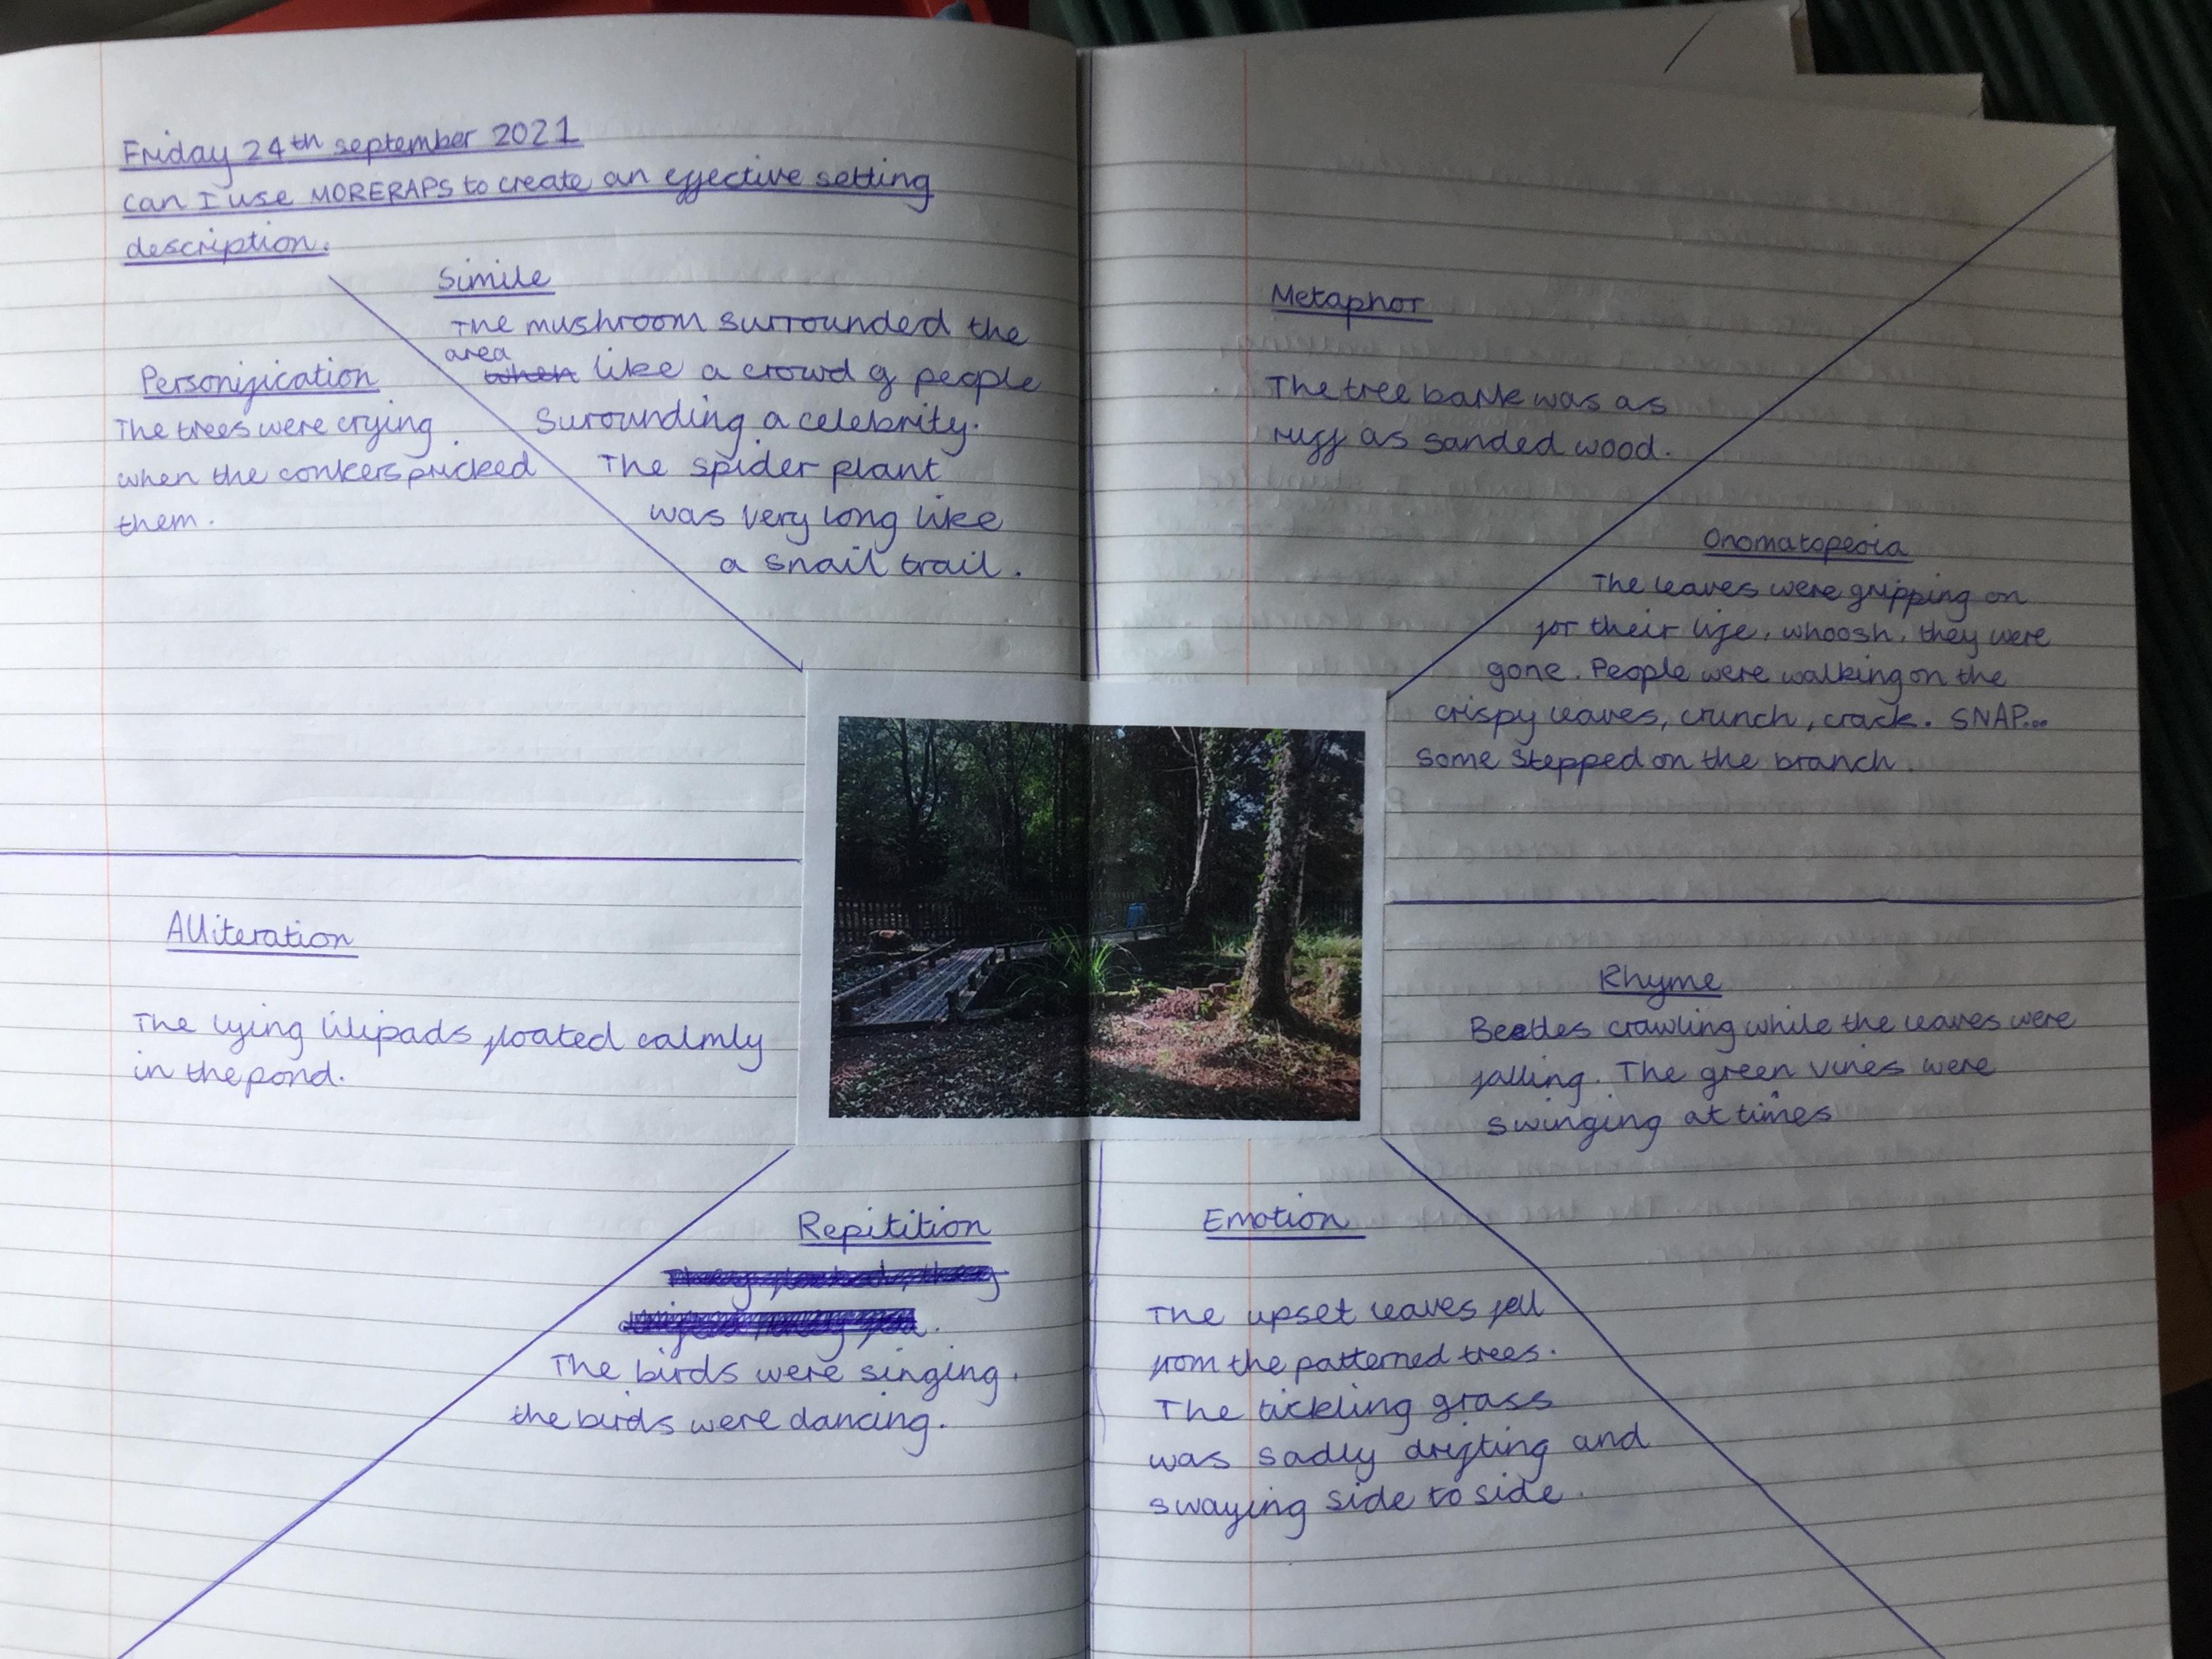 Friday 24th september 2021
can I use MORERAPS to create an effective setting
description.
Simile
The mushroom surrounded the
area
when like a crowd of people
Surounding a celebrity.
The spider plant
was very long like
a snail trail.
Personification
The trees were crying
when the conkers pricked
them.
Metaphor
The tree bark was as
ruff as sanded wood.
Onomatopeoia
The leaves were gripping on
for their life, whoosh, they were
gone. People were walking on the
crispy leaves, crunch, crack. SNAP...
some stepped on the branch.
Alliteration
The lying lilipads floated calmly
in the pond.
Rhyme
Beetles crawling while the leaves were
falling. The green vines were
swinging at times
Repitition
The birds were singing,
the birds were dancing.
Emotion
The upset leaves fell
from the patterned trees.
The tickling grass
was sadly drifting and
swaying side to side.